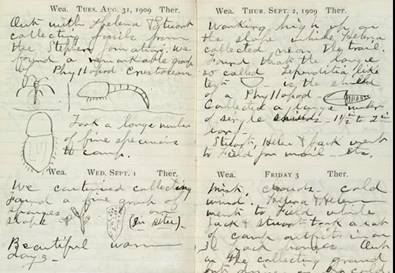 Wea. TUES. AUG. 31, 1909 Ther.
Out with Helena & Stuart
collecting fossils from
the Stephen formation. We
found a remarkable group
of Phyllopod Crustaceans
Took a large number
of fine specimens
to camp.
Wea. WED. SEPT. 1 Ther.
We continued collecting
found a fine group of
sponges on
slope (in situ).
Beautiful warm
days -
Wea. THUR. SEPT. 2, 1909 Ther.
Working high up on
the slope while Helena
collected near the trail.
Found that the large
so called Leperditia like
test is the shield
of a Phyllopod.
Collected a large number
of single
Stuart, Helen & Jack went
to Field for mail etc.
Wea. FRIDAY 3 Ther.
Mist. clouds. cold
wind. Helena & Helen
went to Field while
Jack & Stuart took a
camp outfit
the collecting ground